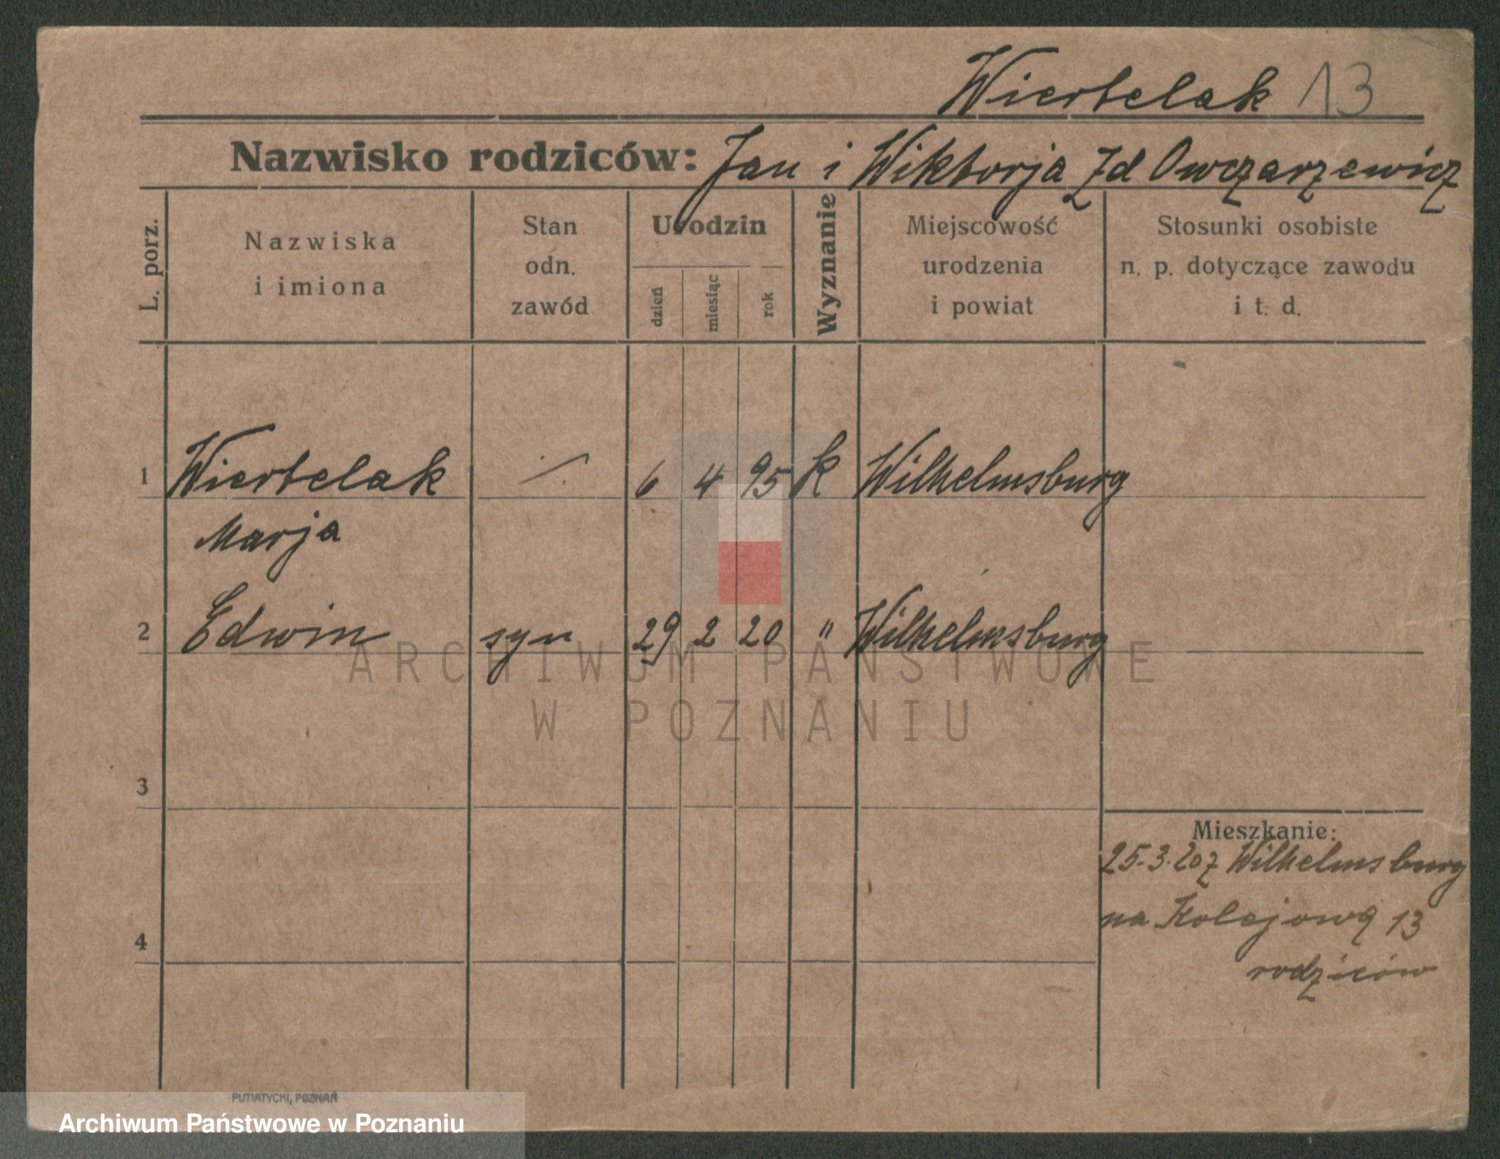 Wiertelak 13
Nazwisko rodziców: Jan i Wiktorja Zd Owczarzewicz
L. porz.
Nazwiska
i imiona
Stan
odn.
zawód
Urodzin
dzień
miesiąc
rok
Wyznanie
Miejscowość
urodzenia
i powiat
Stosunki osobiste
n. p. dotyczące zawodu
i t. d.
1 Wiertelak ·/. 6 4 95 k Wilhelmsburg
Marja
2 Edwin syn 29 2 20 " Wilhelmsburg
ARCHIWUM PAŃSTWOWE
W POZNANIU
3
Mieszkanie:
25.3.20 z Wilhelmsburg
na Kolejową 13
4
rodziców
PUTIATYCKI, POZNAŃ
Archiwum Państwowe w Poznaniu